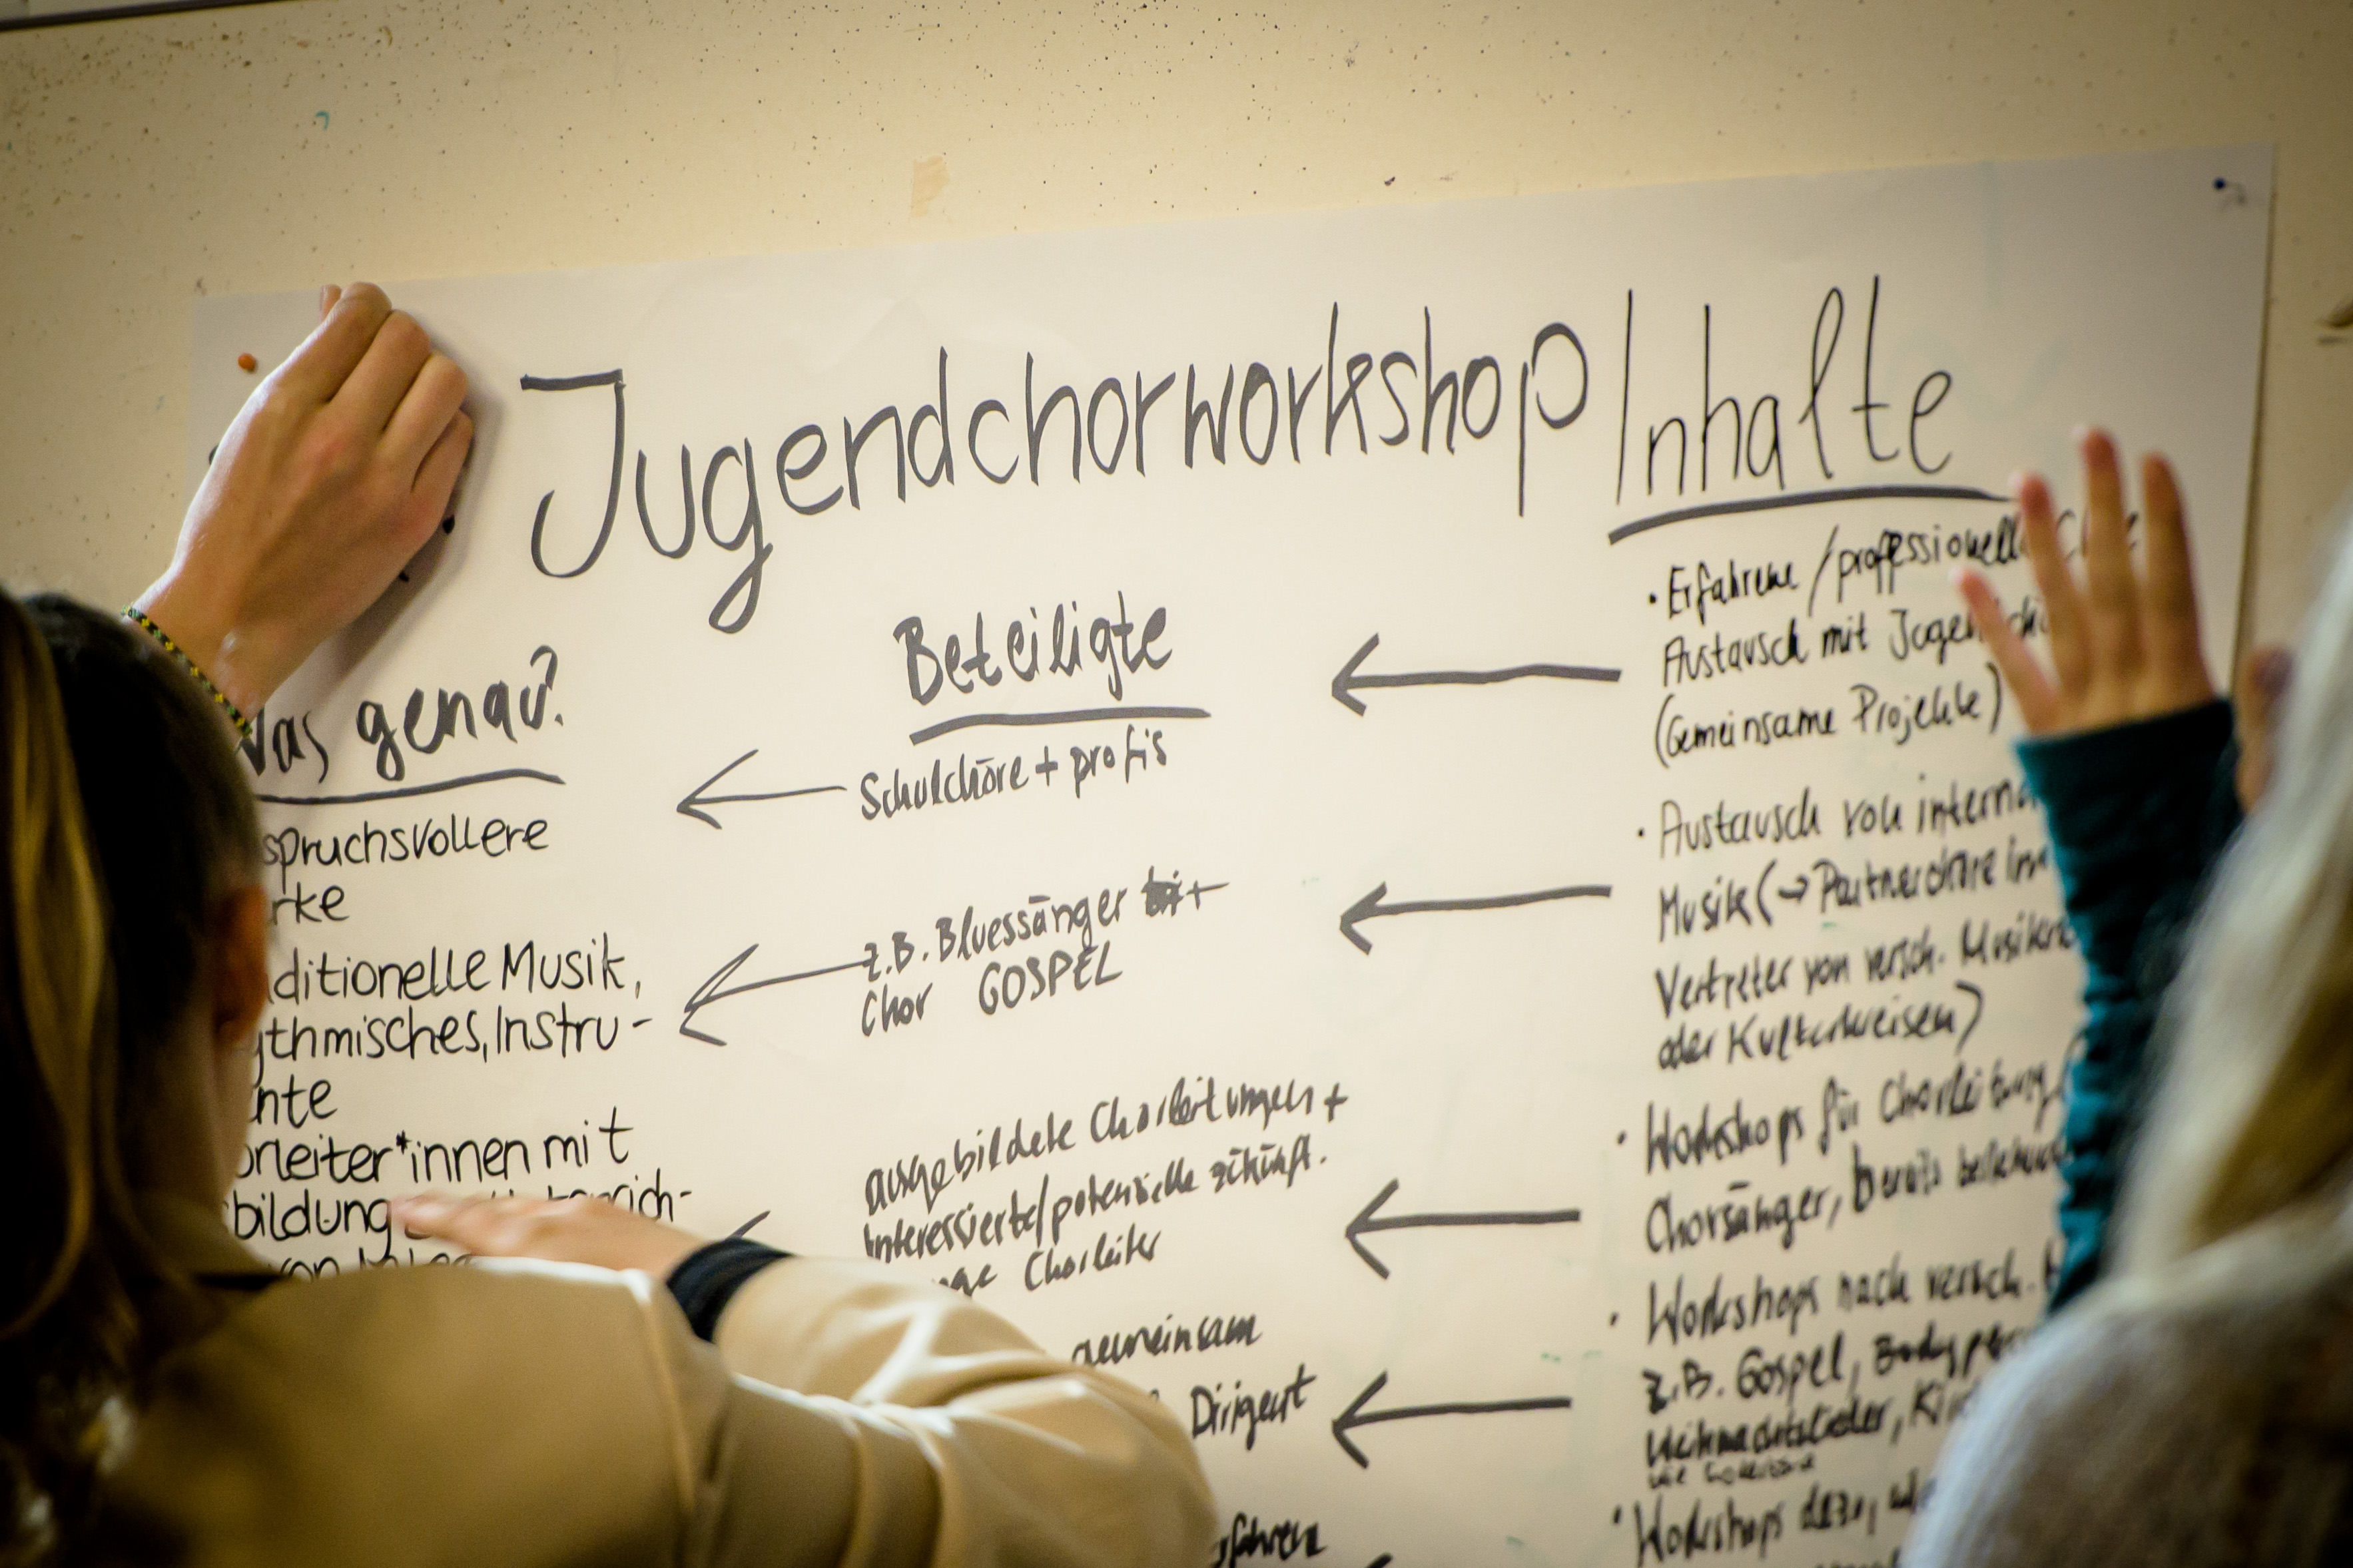 Jugendchorworkshop
Was genau?
spruchsvollere
rke
ditionelle Musik,
ythmisches, Instru-
nte
orleiter*innen mit
bildung
Beteiligte
Schulchöre + profis
z.B. Bluessänger +
Chor GOSPEL
ausgebildete Chorleitungen +
Interessierte/potenzielle zukünft.
Chorleiter
gemeinsam
Dirigent
Inhalte
• Erfahrene / professionelle
Austausch mit Jugendchö
(Gemeinsame Projekte)
• Austausch von interna
Musik (→ Partnerchöre
Vertreter von versch.
oder Kulturkreisen)
• Workshops für Chorleitung
Chorsänger, bereits
• Workshops nach versch.
z.B. Gospel,
Weihnachtslieder,
• Workshops